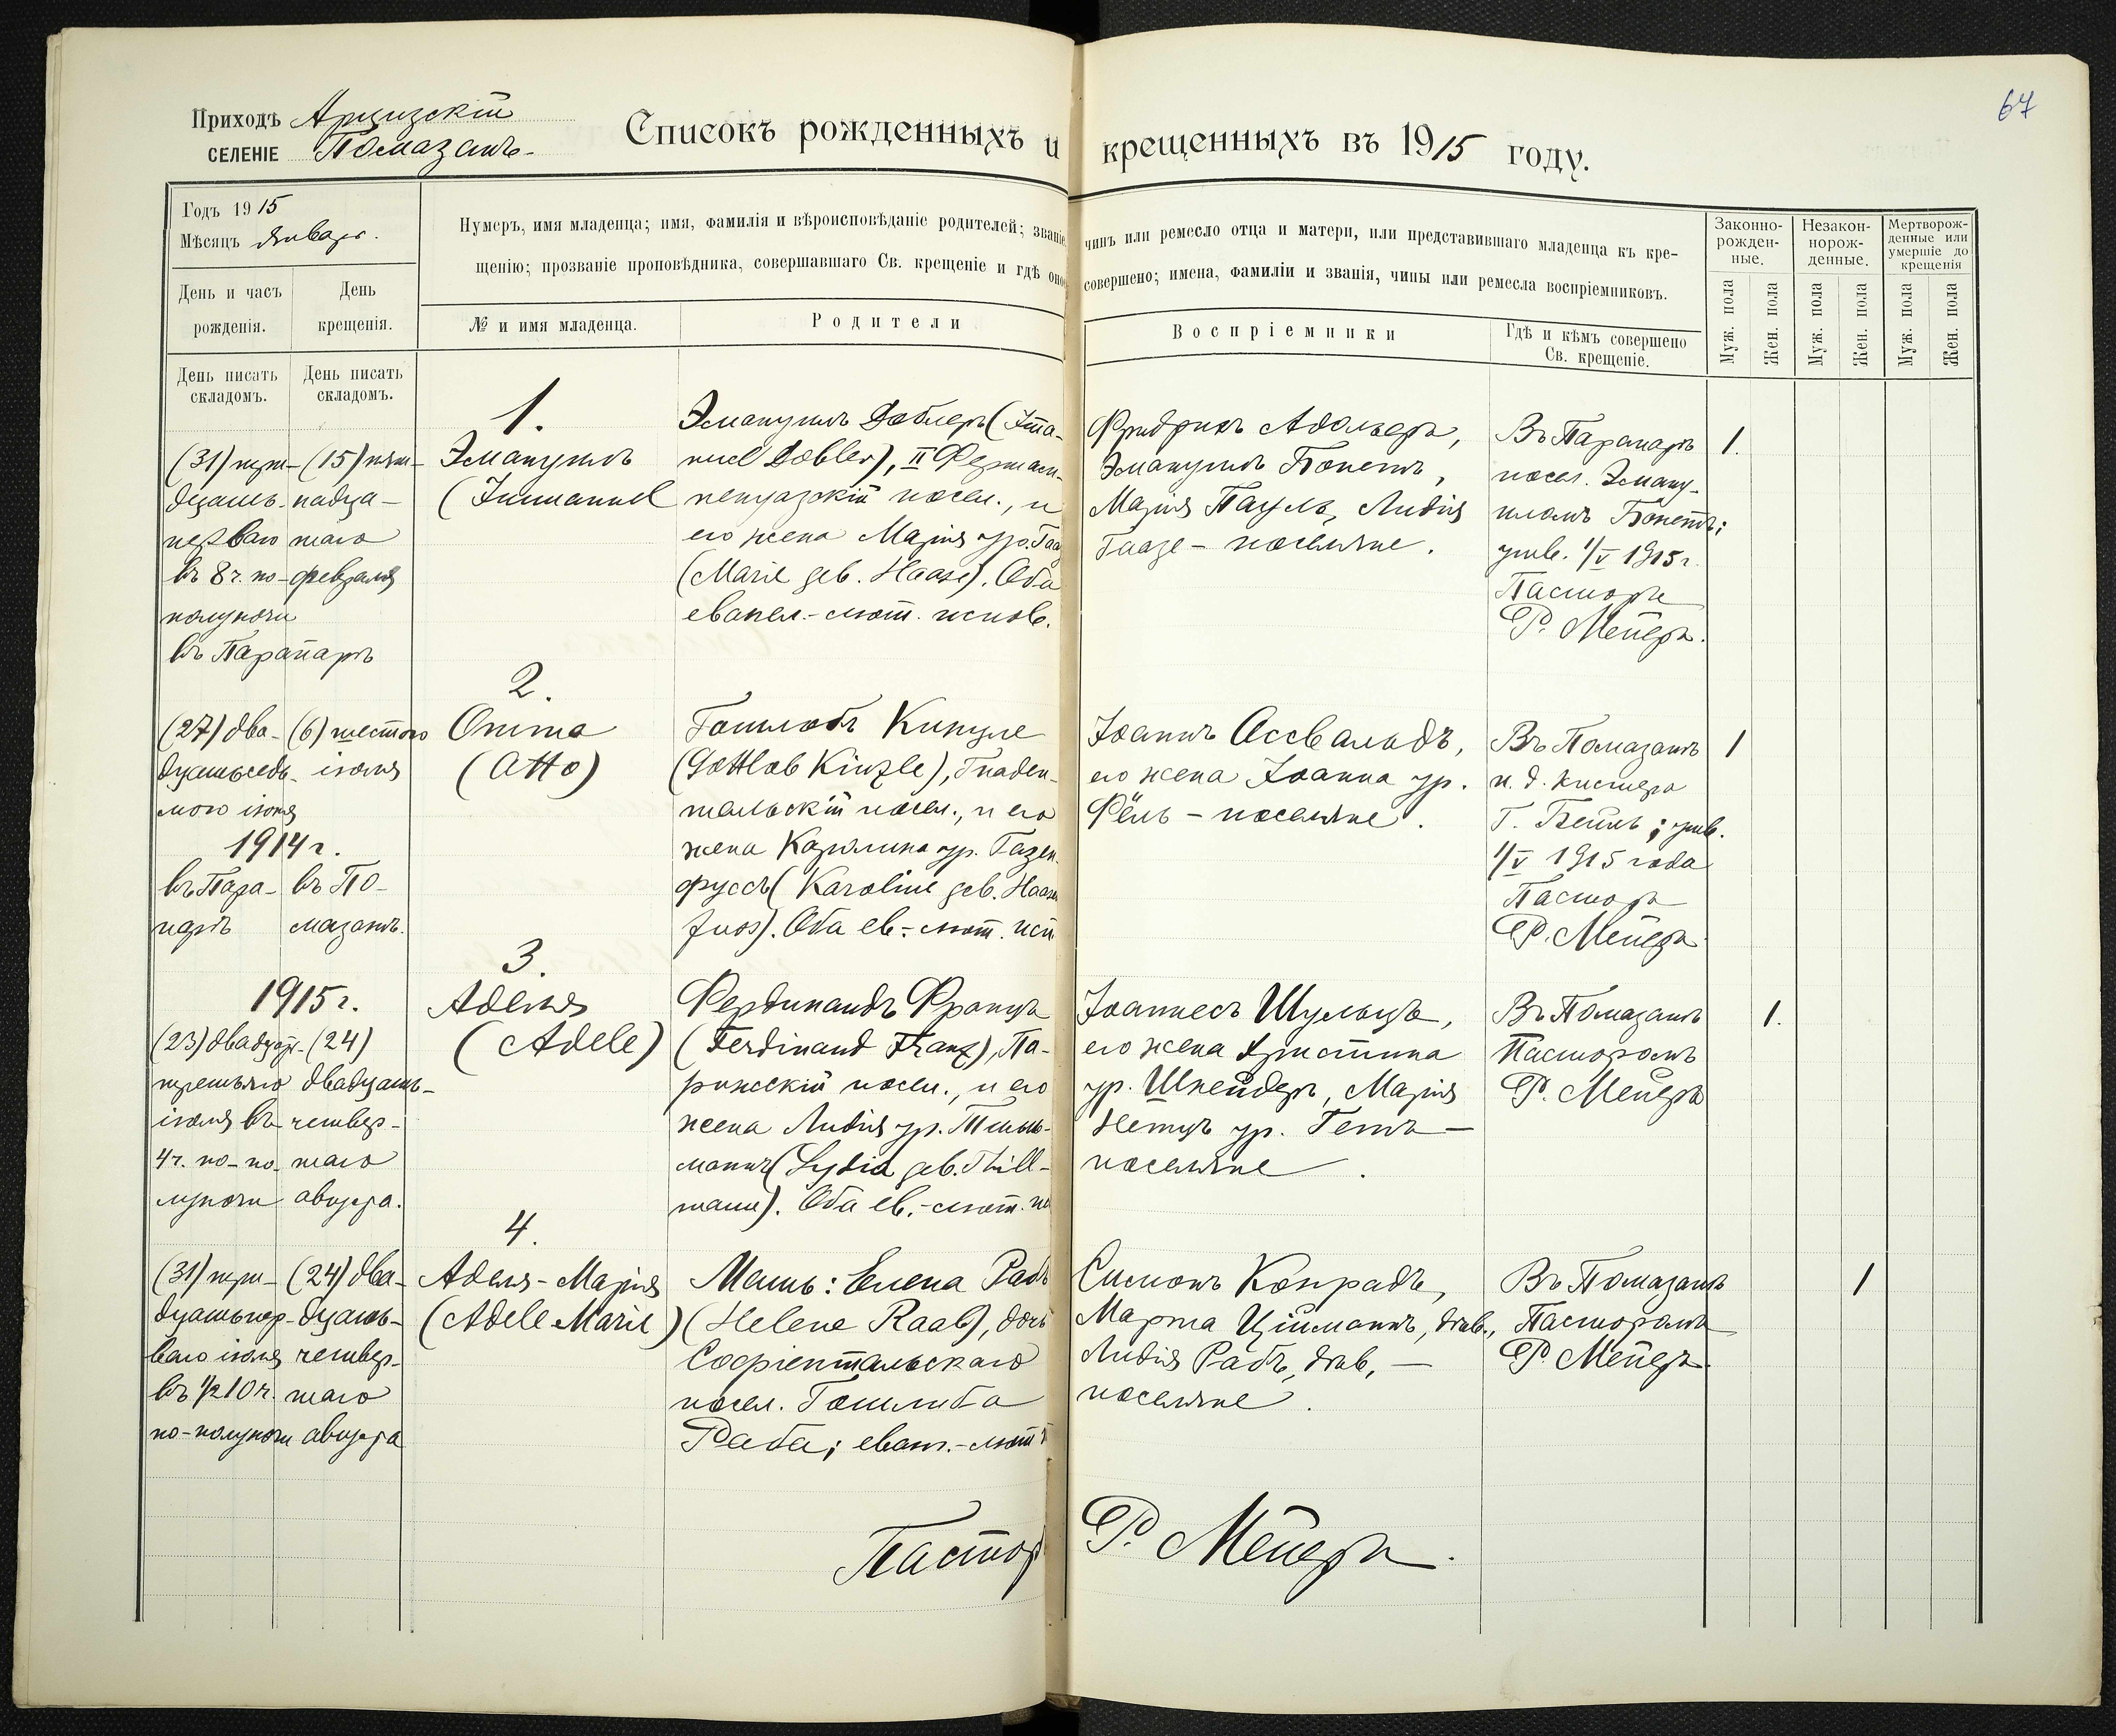 67
Приходъ Арцизскій
СЕЛЕНІЕ Помазанъ
Списокъ рожденныхъ и крещенныхъ въ 1915 году.
Годъ 1915
Мѣсяцъ Январь.
День и часъ рожденія.
День крещенія.
День писать складомъ.
День писать складомъ.
Нумеръ, имя младенца; имя, фамилія и вѣроисповѣданіе родителей; званіе, чинъ или ремесло отца и матери, или представившаго младенца къ кре-
щенію; прозваніе проповѣдника, совершавшаго Св. крещеніе и гдѣ оное совершено; имена, фамиліи и званія, чины или ремесла воспріемниковъ.
№ и имя младенца.
Родители
Воспріемники
Гдѣ и кѣмъ совершено
Св. крещеніе.
Законно-
рожден-
ные.
Незакон-
норож-
денные.
Мертворож-
денные или
умершіе до
крещенія
Муж. пола
Жен. пола
Муж. пола
Жен. пола
Муж. пола
Жен. пола
(31) три-
дцать
перваго
въ 8 ч. по-
полуночи
въ Парапарѣ
(15) пят-
надца-
таго
февраля
1.
Эмануилъ
(Immanuel
Эмануилъ Доблеръ (Imma-
nuel Dobler), II Фершам-
пенуазскій посел., и
его жена Марія ур. Гаа
(Marie geb. Haase). Оба
евангел.-лют. исповѣ.
Фридрихъ Адольферъ,
Эмануилъ Бонетъ,
Марія Пауль, Лидія
Гаазе - поселяне.
Въ Парапарѣ
посел. Эману-
иломъ Бонетъ;
утв. 1/V 1915 г.
Пасторъ
Р. Мейеръ.
1.
(27) два-
дцатьседь-
мого іюня
1914 г.
въ Пара-
парѣ
(6) шестого
іюля
въ По-
мазанѣ.
2.
Отто
(Otto)
Готлобъ Кинцле
(Gottlob Kinzle), Гнаден-
тальскій посел., и его
жена Каролина ур. Газен-
фуссъ (Karoline geb. Haasen
fuss). Оба ев.-лют. исп
Іоаннъ Ассвальдъ,
его жена Іоанна ур.
Фёлль - поселяне.
Въ Помазанѣ
и. д. кистера
Г. Бейль; утв.
1/V 1915 года
Пасторъ
Р. Мейеръ
1
1915 г.
(23) двадцать
третьяго
іюля въ
4 ч. по-по-
луночи
(24)
двадцать-
четвер-
таго
августа.
3.
Аделя
(Adele)
Фердинандъ Францъ
(Ferdinand Franz), Па-
рижскій посел., и его
жена Лидія ур. Тилль-
маннъ (Lydia geb. Thill-
mann). Оба ев.-лют. ис
Іоаннесъ Шульцъ,
его жена Христина
ур. Шнейдеръ, Марія
Немцъ ур. Гетъ -
поселяне.
Въ Помазанѣ
Пасторомъ
Р. Мейеръ
1.
(31) три-
дцатьпер-
ваго іюля
въ 1/2 10 ч.
по-полуночи
(24) два-
дцать-
четвер-
таго
августа
4.
Аделя-Марія
(Adele Marie)
Мать: Елена Рабъ
(Helene Raab), дочь
Софіентальскаго
посел. Готлиба
Раба; еванг.-лют
Симонъ Конрадъ,
Марта Циммманъ, дѣв.,
Лидія Рабъ, дѣв, -
поселяне.
Въ Помазанѣ
Пасторомъ
Р. Мейеръ
1
Пасторъ Р. Мейеръ.